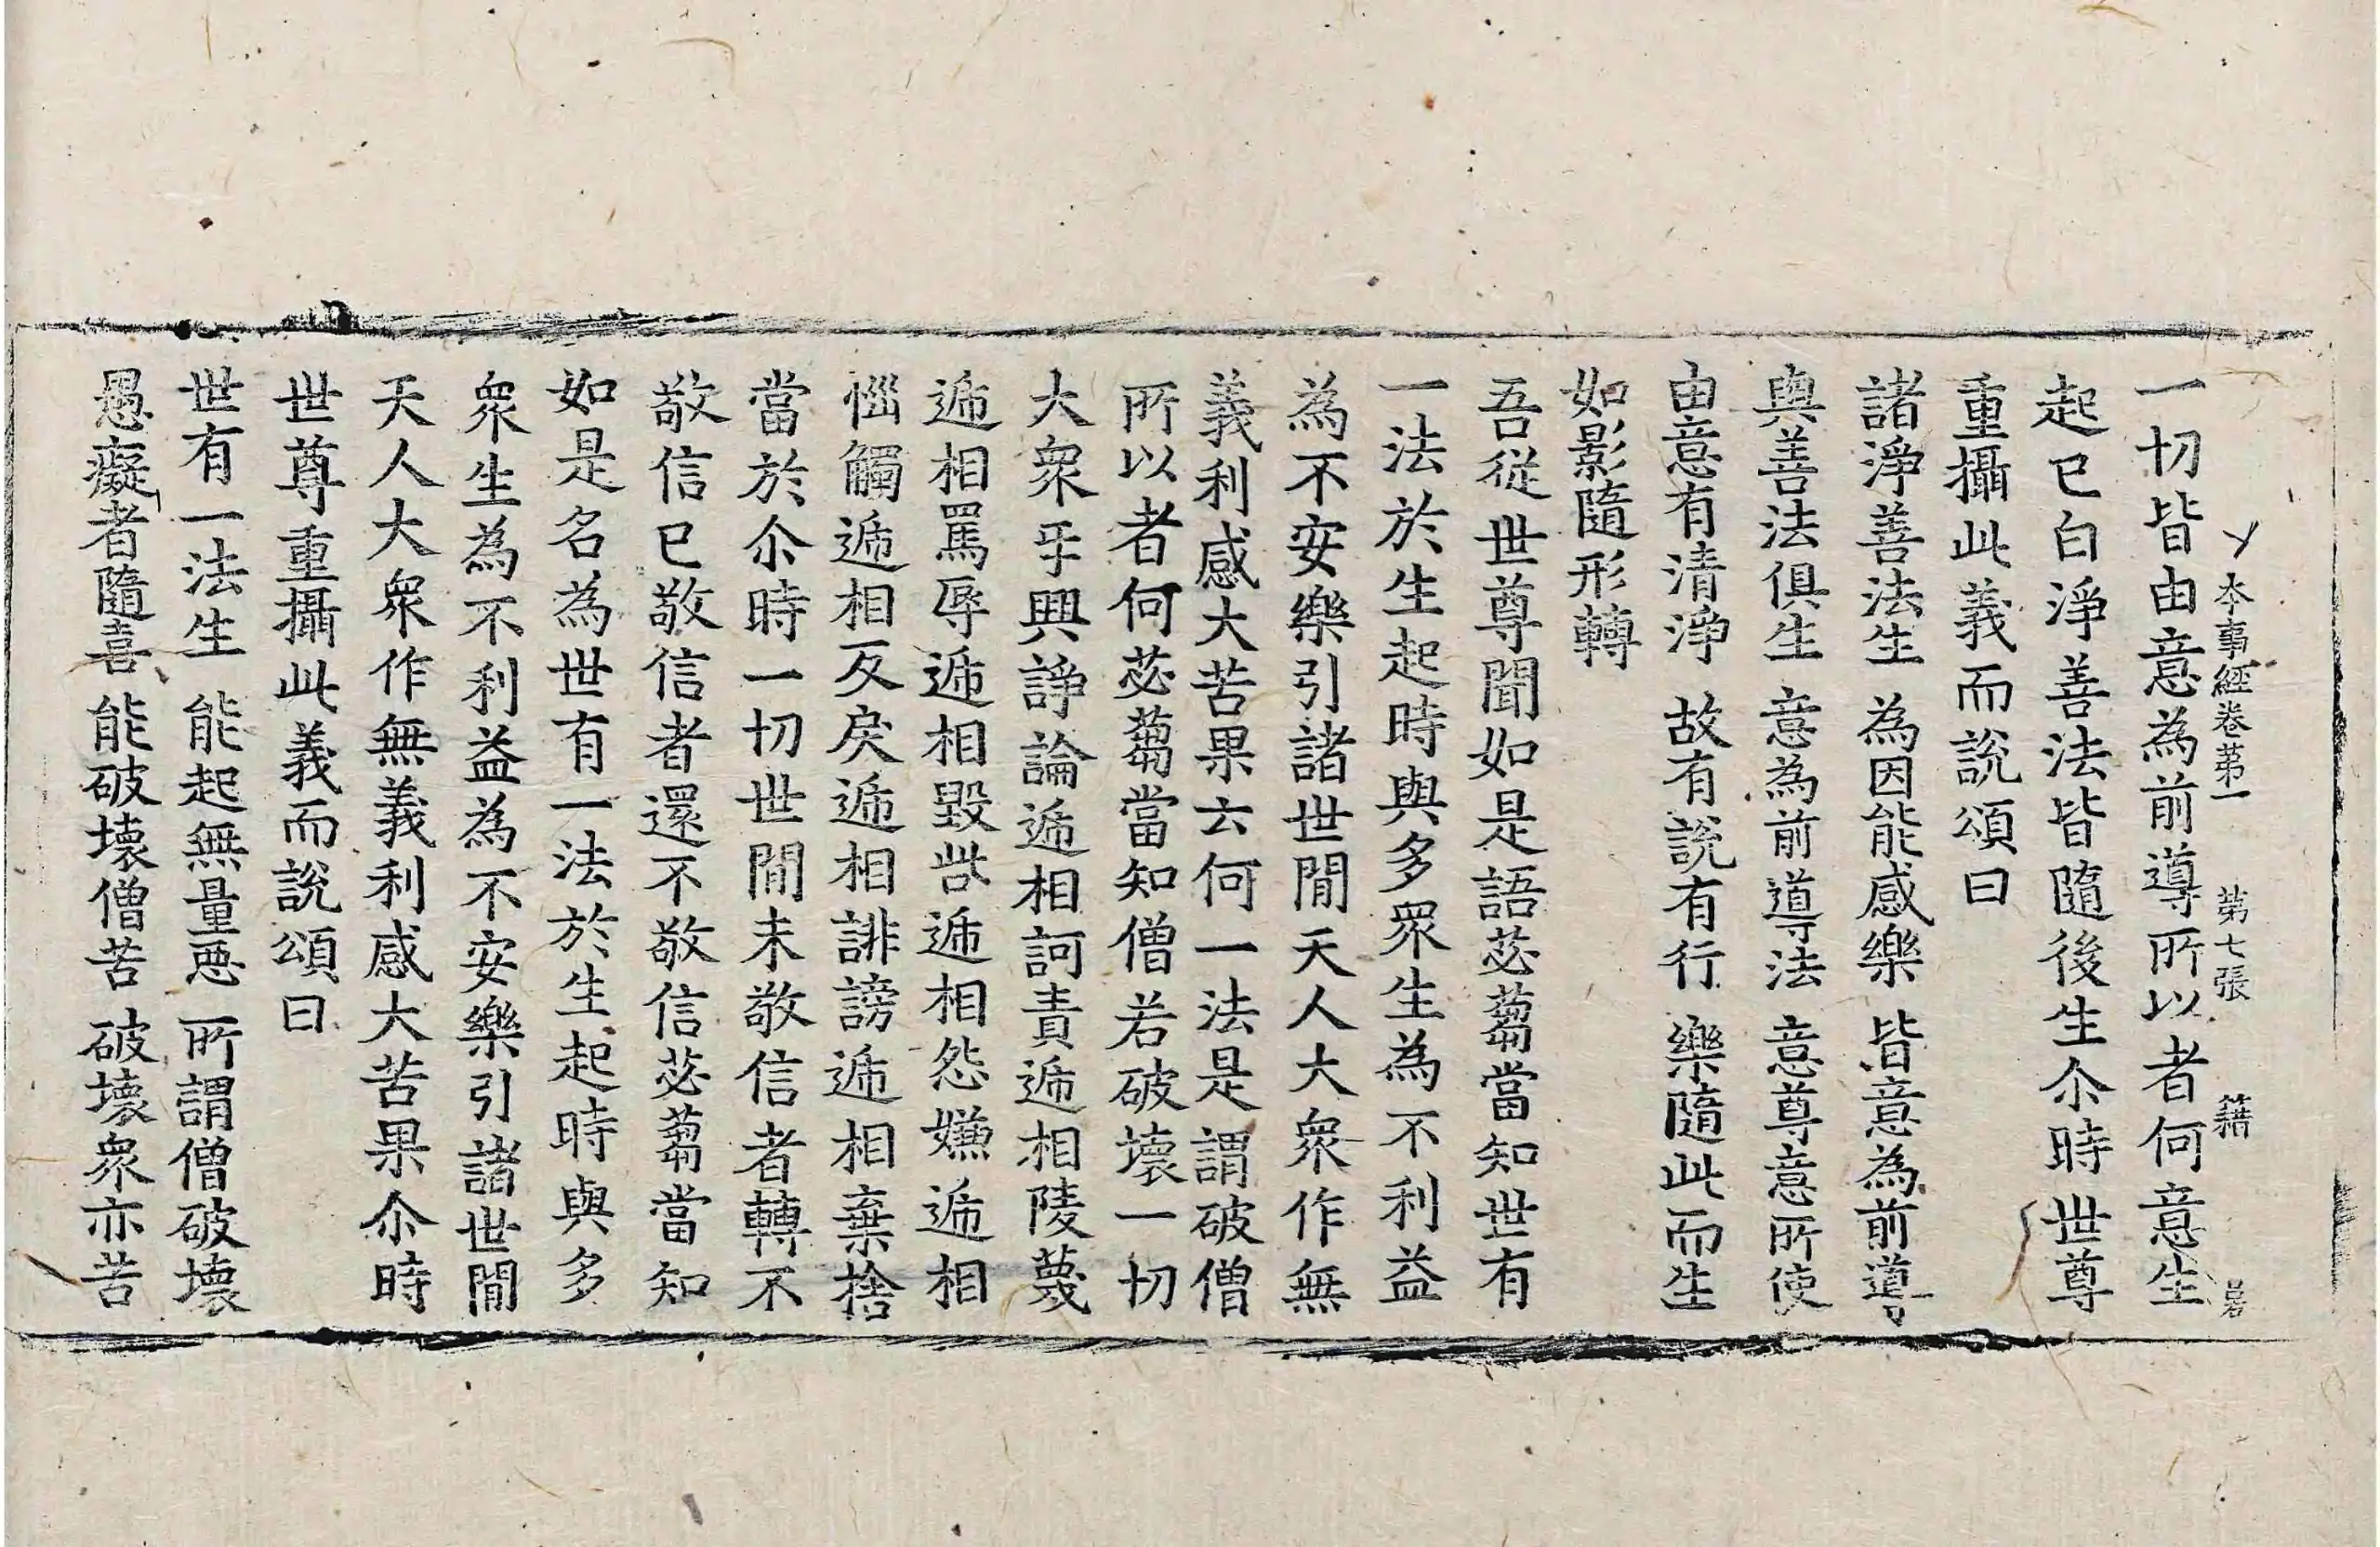 本事經卷苐一 第七張 籍
一切皆由意為前導所以者何意生
起已白淨善法皆隨後生尒時世尊
重攝此義而說頌曰
諸淨善法生 為因能感樂 皆意為前導
與善法俱生 意為前導法 意尊意所使
由意有清淨 故有說有行 樂隨此而生
如影隨形轉
吾從世尊聞如是語苾蒭當知世有
一法於生起時與多眾生為不利益
為不安樂引諸世閒天人大眾作無
義利感大苦果云何一法是謂破僧
所以者何苾蒭當知僧若破壞一切
大眾乎興諍論遞相訶責遞相陵蔑
遞相罵辱遞相毀呰遞相怨嫌遞相
惱觸遞相反戾遞相誹謗遞相棄捨
當於尒時一切世閒未敬信者轉不
敬信已敬信者還不敬信苾蒭當知
如是名為世有一法於生起時與多
眾生為不利益為不安樂引諸世閒
天人大眾作無義利感大苦果尒時
世尊重攝此義而說頌曰
世有一法生 能起無量惡 所謂僧破壞
愚癡者隨喜 能破壞僧苦 破壞眾亦苦